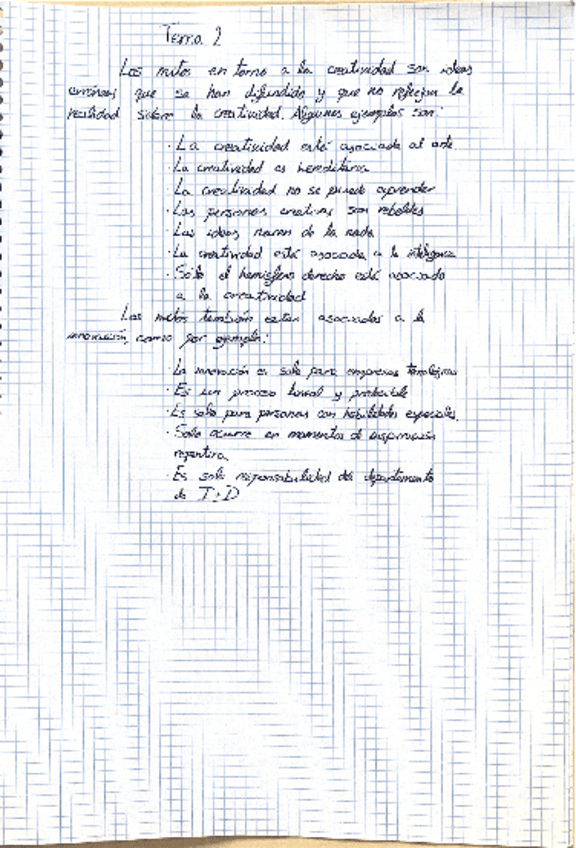 Tema 2
Los mitos en torno a la creatividad son ideas
erróneas que se han difundido y que no reflejan la
realidad sobre la creatividad. Algunos ejemplos son:
· La creatividad está asociada al arte
· La creatividad es hereditaria
· La creatividad no se puede aprender
· Las personas creativas son rebeldes
· Las ideas nacen de la nada
· La creatividad está asociada a la inteligencia
· Sólo el hemisferio derecho está asociado
a la creatividad
Los mitos también están asociados a la
innovación, como por ejemplo:
La innovación es solo para empresas tecnológicas
· Es un proceso lineal y predecible
· Es solo para personas con habilidades especiales.
· Solo ocurre en momentos de inspiración
repentina
· Es solo responsabilidad del departamento
de I+D